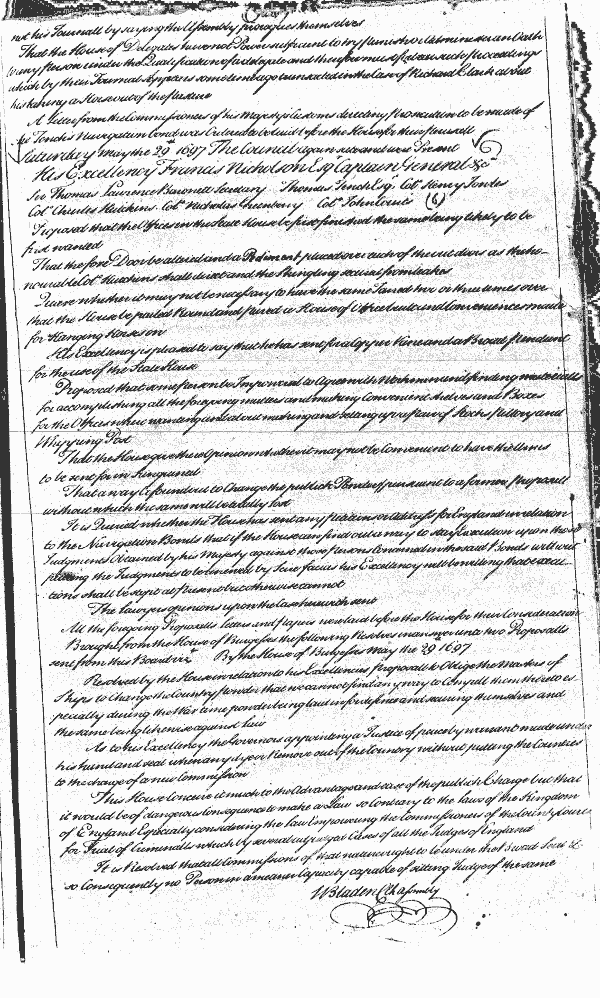 not his Journall by saying the Assembly prorogues themselves
That the House of Delegates have not Power sufficient to try punish or determine an Oath
to any person under the Qualification of a delegate and they himself such proceedings
which by their Journall appears some time ago transacted in the Case of Richard Clark about
his having a Horse out of the pasture
A letter from the Commissioners of his Majestys Customs directing prosecution to be made of
the French Navigation Bond was Ordered to be laid before the House for their perusall
Saturday May the 29th 1697 The Councill again sate and were Present
His Excellency Francis Nicholson Esqr Captain Generall &c
Sir Thomas Laurence Baronett Secretary Thomas Tench Esqr Colo Henry Jowles
Colo Charles Hutchins Colo Nicholas Greenberry Colo John Courts (6)
Proposed that the Offices in the State House be first finished the same being likely to be
first wanted
That the fore Door be altered and a Pediment placed over each of the out doors as the ho-
nourable Colo Hutchins shall direct and the Shingling secured from leakes
Quere whether it may not be necessary to have the same Tarred two or three times over
that the House be pailed Round and paved a House of Office built and Conveniences made
for Hanging Horses on
His Excellency is pleased to say that he has sent for a Copper Vane and a Broad Pendant
for the use of the State House
Proposed that some person be Impowred to Agree with Workmen and finding materialls
for accomplishing all the foregoing matters and making Convenient Shelves and Boxes
for the Offices where wanting and also making and setting up a pair of Stocks pillory and
Whipping Post
That the House give their Opinion whether it may not be Convenient to have the Armes
to be sent for in England
That a way be found out to Change the publick Powder pursuant to a former Proposall
without which the same will be totally lost
It is Queried whether the House has sent any petition or address for England in relation
to the Navigation Bonds that if the House can find out a way to stay Execution upon those
Judgments Obtained by his Majesty against those persons Concerned in the said Bonds without
putting the Judgments to be renewed by Scire facias his Excellency is willing that Execu-
tions shall be stopt as it is not but otherwise cannot
The Lawyers opinions upon the last herewith sent
All the foregoing Proposalls Letters and papers were laid before the House for their Consideration
Brought from the House of Burgesses the following Resolves in answer unto two Proposalls
sent from this Board vizt By the House of Burgesses May the 29 1697
Resolved by the House in relation to his Excellencies proposall to Oblige the Masters of
Ships to Change the Country powder that we cannot find any way to Compell them thereto es-
pecially during the War time powder being laid in for defence and securing themselves and
the same being likewise against Law
As to his Excellency the Governors appointing a Justice of peace by warrant made under
his hand and seal when any dye or Remove out of the Country without putting the Counties
to the charge of a new Commission
This House Conceive it much to the Advantage and ease of the publick Charge but that
it would be of dangerous Consequence to make a Law so Contrary to the Laws of the Kingdom
of England Especially considering the Law Empowring the Commissioners of the County Courts
for Triall of Criminalls which by severall are great Cases of all the Judges of England
It is Resolved that all Commissions of that nature ought to be under the Broad Seal &
so Consequently no Person in a meaner Capacity capable of sitting Judge of the same
W Bladen Cl Assembly